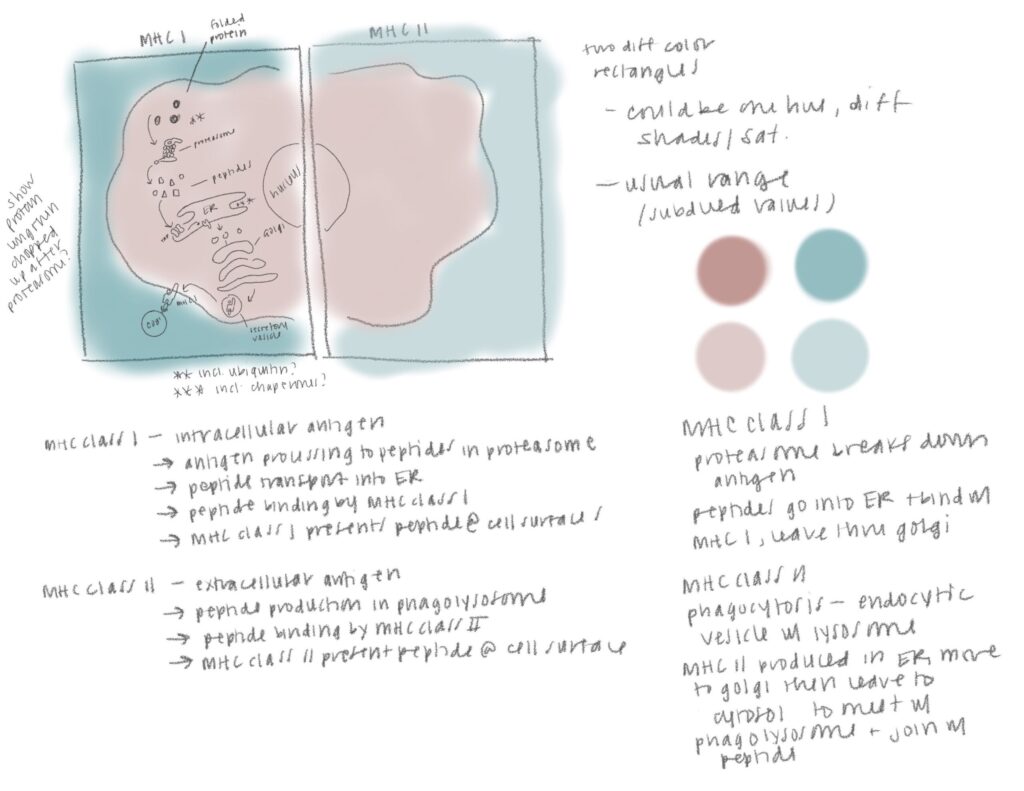 MHC I
folded
protein
**
proteasome
peptides
ER
***
nucleus
golgi
MHC I
CD8+
secretory
vesicle
show
protein
chopped
up after
proteasome?
** incl. ubiquitin?
*** incl. chaperones?
MHC II
two diff color
rectangles
- could be one hue, diff
shades/sat.
- usual range
(subdued values)
MHC class I - intracellular antigen
→ antigen processing to peptides in proteasome
→ peptide transport into ER
→ peptide binding by MHC class I
→ MHC class I presents peptide @ cell surface
MHC class II - extracellular antigen
→ peptide production in phagolysosome
→ peptide binding by MHC class II
→ MHC class II present peptide @ cell surface
MHC class I
proteasome breaks down
antigen
peptides go into ER + bind w/
MHC I, leave thru golgi
MHC class II
phagocytosis - endocytic
vesicle w/ lysosome
MHC II produced in ER, move
to golgi then leave to
cytosol to meet w/
phagolysosome + join w/
peptide